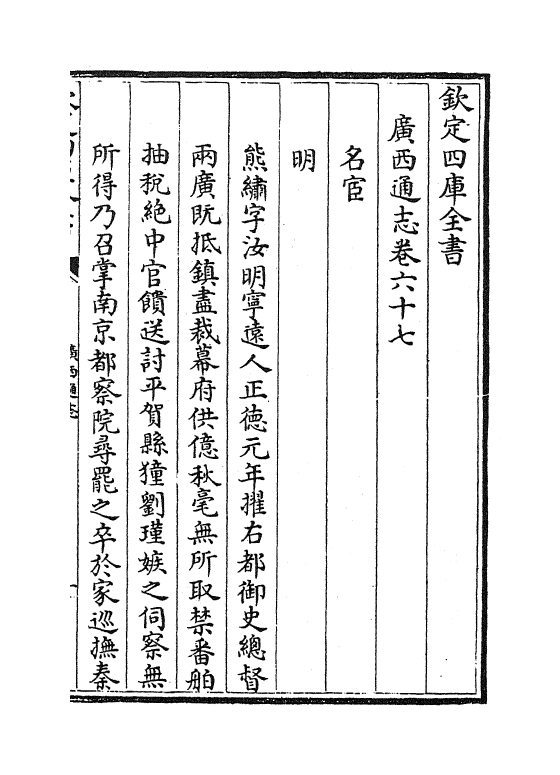 欽定四庫全書
廣西通志卷六十七
名宦
明
熊繡字汝明寧遠人正德元年擢右都御史總督
兩廣既抵鎮盡裁幕府供億秋毫無所取禁番舶
抽稅絶中官饋送討平賀縣獞劉瑾嫉之伺察無
所得乃召掌南京都察院尋罷之卒於家巡撫秦
廣西通志